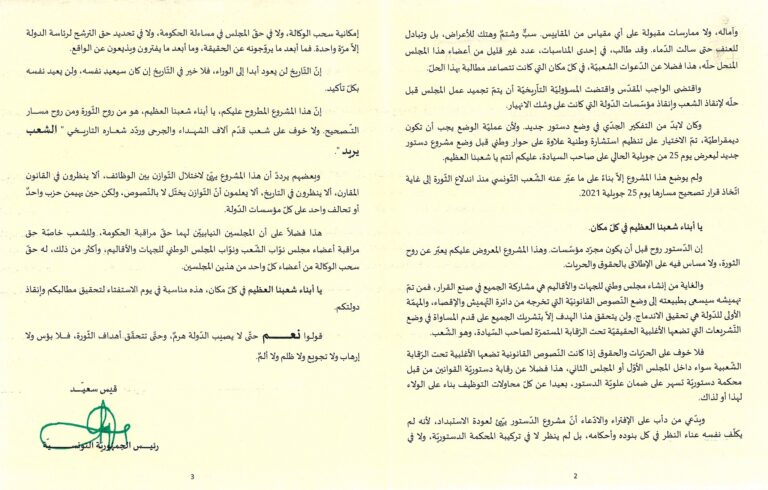 وآماله، ولا ممارسات مقبولة على أي مقياس من المقاييس. سبٌّ وشتمٌ وهتك للأعراض، بل وتبادل
للعنف حتى سالت الدّماء. وقد طالب، في إحدى المناسبات، عدد غير قليل من أعضاء هذا المجلس
المنحل حلّه، هذا فضلا عن الدّعوات الشعبيّة، في كلّ مكان التي كانت تتصاعد مطالبة بهذا الحلّ.
واقتضى الواجب المقدّس واقتضت المسؤوليّة التأريخيّة أن يتمّ تجميد عمل المجلس قبل
حلّه لإنقاذ الشعب وإنقاذ مؤسّسات الدّولة التي كانت على وشك الانهيار.
وكان لابدّ من التفكير الجدّي في وضع دستور جديد. ولأن عمليّة الوضع يجب أن تكون
ديمقراطيّة، تمّ الاختيار على تنظيم استشارة وطنية علاوة على حوار وطني قبل وضع مشروع دستور
جديد ليعرض يوم 25 من جويلية الحالي على صاحب السيادة، عليكم أنتم يا شعبنا العظيم.
ولم يوضع هذا المشروع إلاّ بناءً على ما عبّر عنه الشّعب التّونسي منذ اندلاع الثّورة إلى غاية
اتّخاذ قرار تصحيح مسارها يوم 25 جويلية 2021.
يا أبناء شعبنا العظيم في كلّ مكان.
إن الدّستور روح قبل أن يكون مجرّد مؤسّسات. وهذا المشروع المعروض عليكم يعبّر عن روح
الثورة، ولا مساس فيه على الإطلاق بالحقوق والحريات.
والغاية من إنشاء مجلس وطني للجهات والأقاليم هي مشاركة الجميع في صنع القرار، فمن تمّ
تهميشه سيسعى بطبيعته إلى وضع النّصوص القانونيّة التي تخرجه من دائرة التّهميش والإقصاء، والمهمّة
الأولى للدّولة هي تحقيق الاندماج. ولن يتحقق هذا الهدف إلاّ بتشريك الجميع على قدم المساواة في وضع
التّشريعات التي تضعها الأغلبية الحقيقيّة تحت الرّقابة المستمرّة لصاحب السّيادة، وهو الشّعب.
فلا خوف على الحرّيات والحقوق إذا كانت النّصوص القانونية تضعها الأغلبية تحت الرّقابة
الشّعبية سواء داخل المجلس الأوّل أو المجلس الثاني، هذا فضلا عن رقابة دستوريّة القوانين من قبل
محكمة دستوريّة تسهر على ضمان علويّة الدستور، بعيدا عن كلّ محاولات التوظيف بناء على الولاء
لهذا أو لذاك.
ويدّعي من دأب على الإفتراء والادّعاء أنّ مشروع الدّستور يهيّئ لعودة الاستبداد، لأنه لم
يكلّف نفسه عناء النظر في كلّ بنوده وأحكامه، بل لم ينظر لا في تركيبة المحكمة الدستوريّة، ولا في
2
إمكانية سحب الوكالة، ولا في حقّ المجلس في مساءلة الحكومة، ولا في تحديد حق الترشح لرئاسة الدولة
إلاّ مرّة واحدة. فما أبعد ما يروّجونه عن الحقيقة، وما أبعد ما يفترون ويذيعون عن الواقع.
إنّ التّاريخ لن يعود أبدا إلى الوراء، فلا خير في التّاريخ إن كان سيعيد نفسه، ولن يعيد نفسه
بكلّ تأكيد.
إنّ هذا المشروع المطروح عليكم، يا أبناء شعبنا العظيم، هو من روح الثّورة ومن روح مسار
التّصحيح. ولا خوف على شعب قدّم آلاف الشهداء والجرحى وردّد شعاره التاريخي " الشعب
يريد ".
وبعضهم يردّد أن هذا المشروع يهيّئ لاختلال التّوازن بين الوظائف، ألا ينظرون في القانون
المقارن، ألا ينظرون في التاريخ، ألا يعلمون أنّ التّوازن يختلّ لا بالنّصوص، ولكن حين يهيمن حزب واحدٌ
أو تحالف واحد على كلّ مؤسسات الدّولة.
هذا فضلاً على أن المجلسين النيابيين لهما حقّ مراقبة الحكومة، وللشعب خاصّة حق
مراقبة أعضاء مجلس نوّاب الشّعب ونوّاب المجلس الوطني للجهات والأقاليم، وأكثر من ذلك، له حقّ
سحب الوكالة من أعضاء كلّ واحد من هذين المجلسين.
يا أبناء شعبنا العظيم في كلّ مكان، هذه مناسبة في يوم الاستفتاء لتحقيق مطالبكم وإنقاذ
دولتكم.
قولوا نعم حتّى لا يصيب الدّولة هرمٌ، وحتّى تتحقّق أهداف الثّورة، فلا بؤس ولا
إرهاب ولا تجويع ولا ظلم ولا ألمٌ.
قيس سعيّد
رئيس الجمهوريّة التونسيّة
3